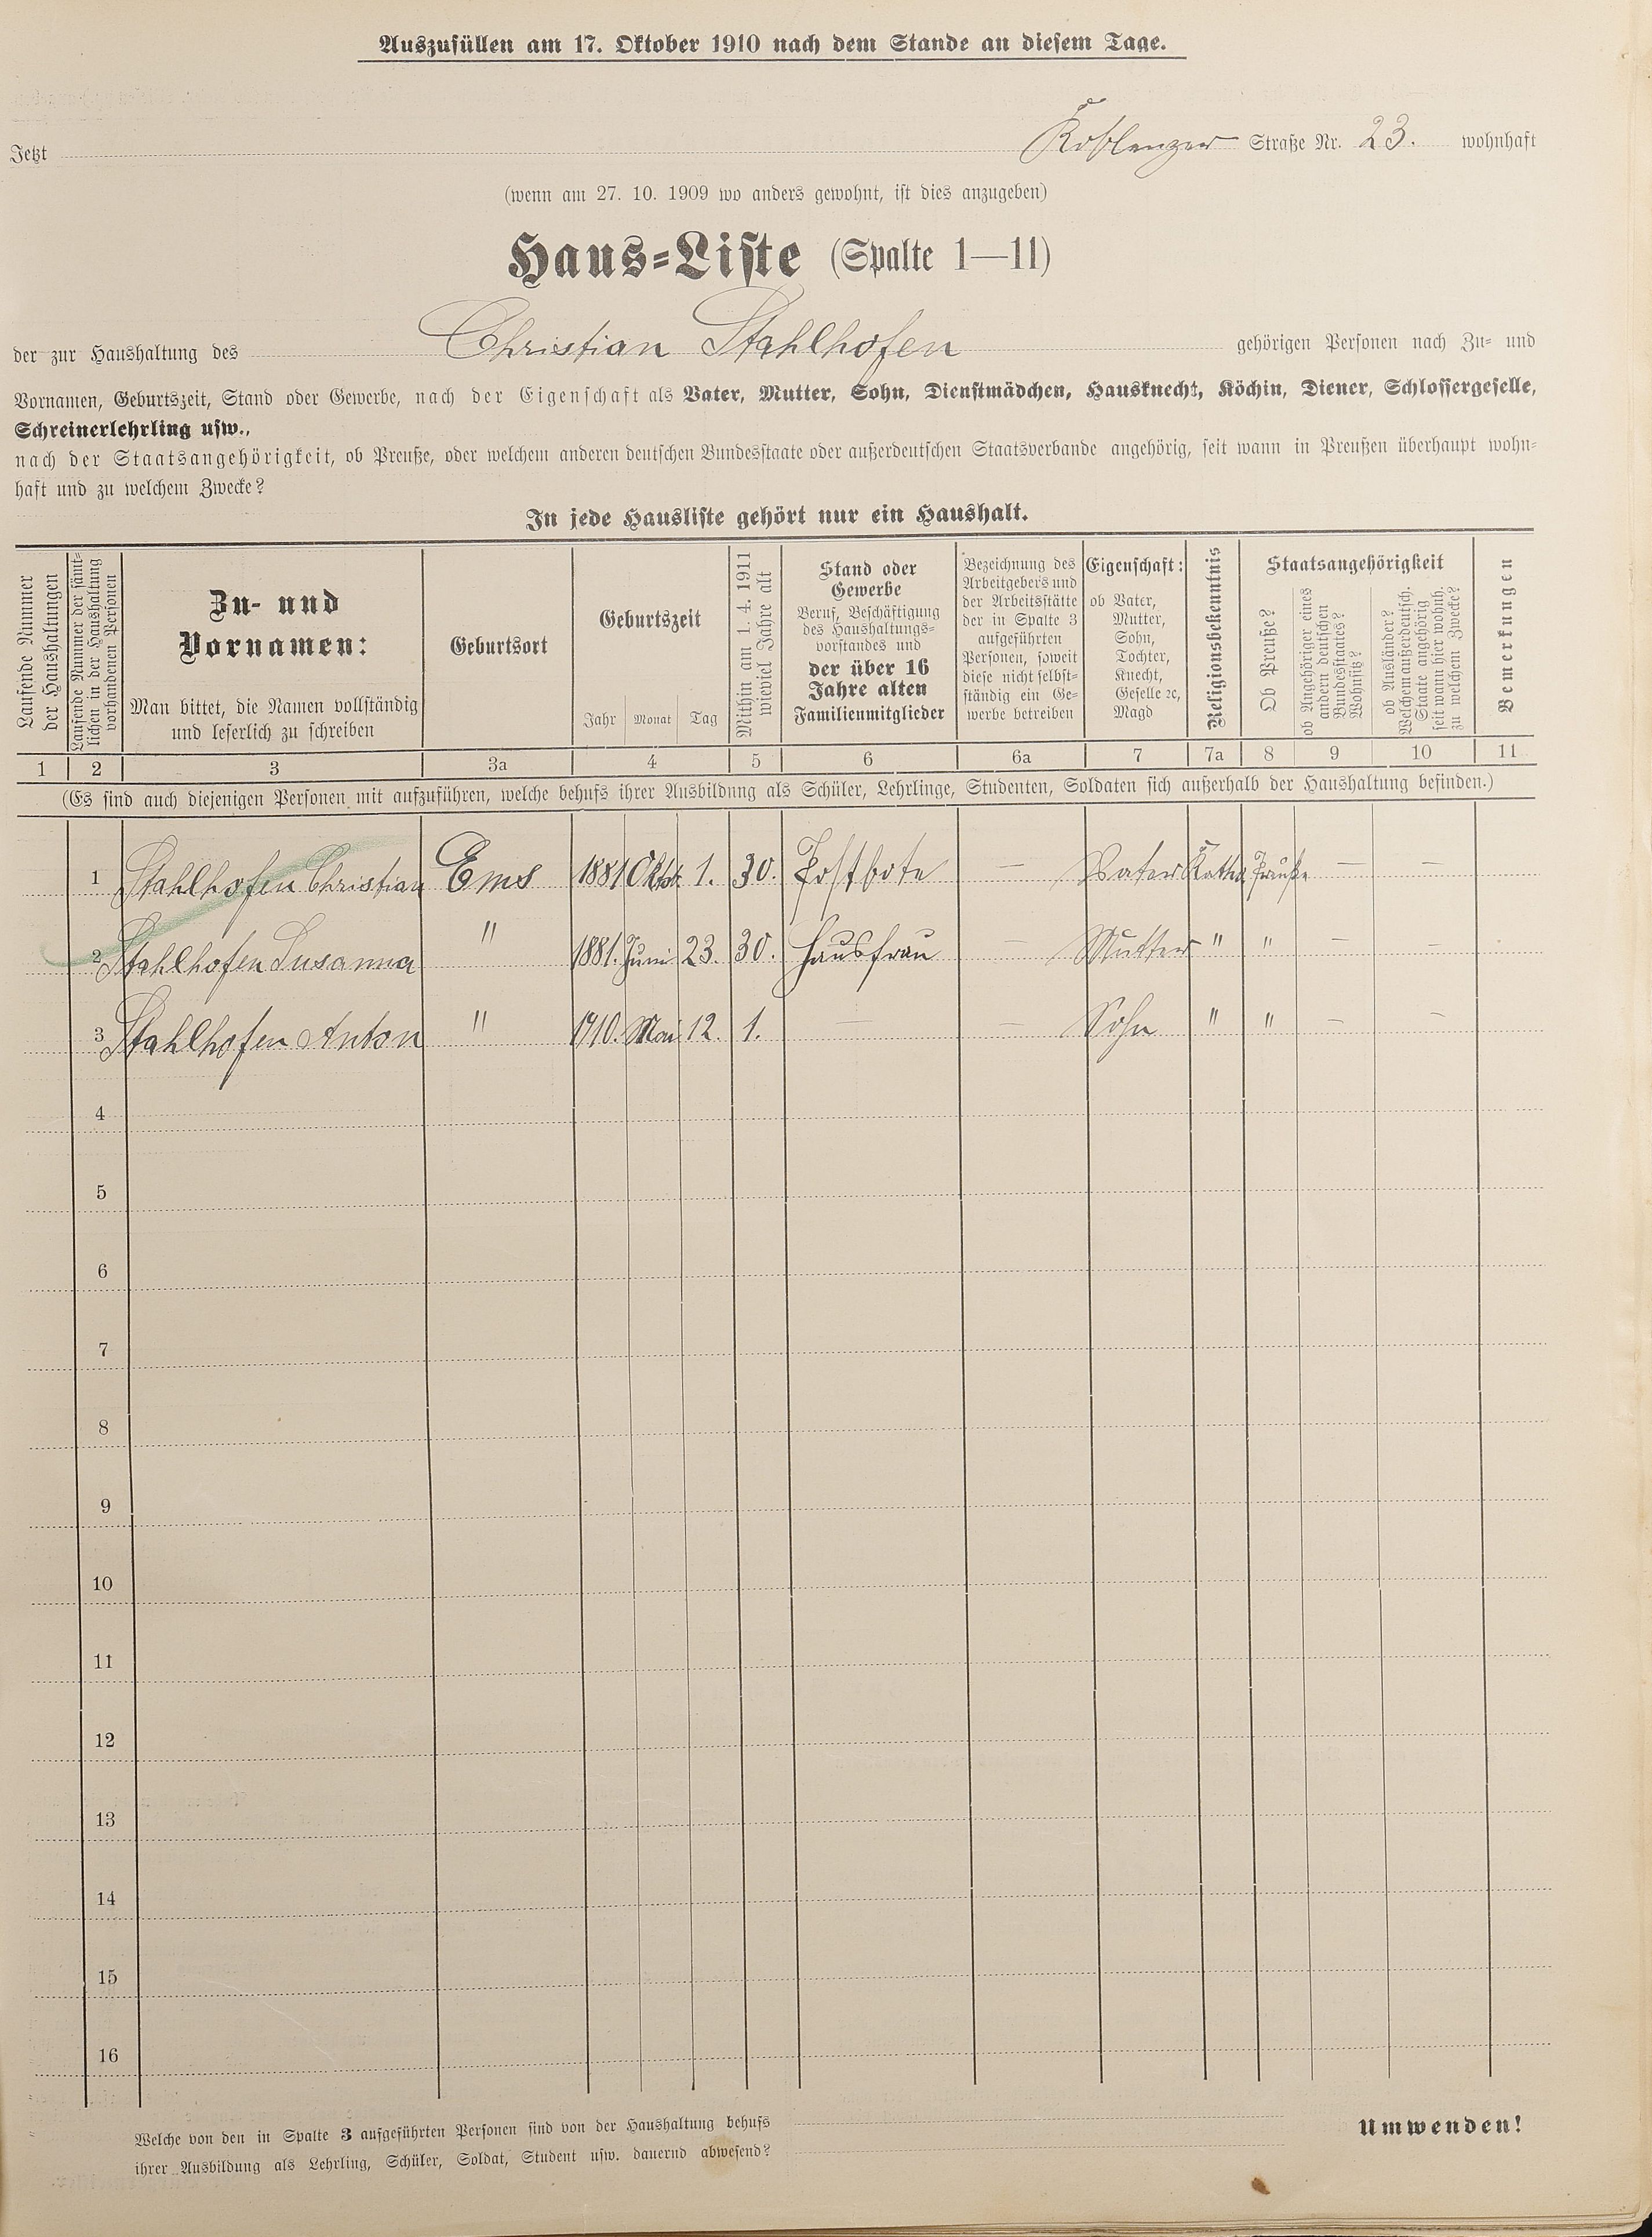 Auszufüllen am 17. Oktober 1910 nach dem Stande an diesem Tage.
Jetzt Koblenzer Straße Nr. 23. wohnhaft
(wenn am 27. 10. 1909 wo anders gewohnt, ist dies anzugeben)
Haus-Liste (Spalte 1—11)
der zur Haushaltung des Christian Stahlhofen gehörigen Personen nach Zu- und
Vornamen, Geburtszeit, Stand oder Gewerbe, nach der Eigenschaft als Vater, Mutter, Sohn, Dienstmädchen, Hausknecht, Köchin, Diener, Schlossergeselle,
Schreinerlehrling usw.,
nach der Staatsangehörigkeit, ob Preuße, oder welchem anderen deutschen Bundesstaate oder außerdeutschen Staatsverbande angehörig, seit wann in Preußen überhaupt wohn-
haft und zu welchem Zwecke?
In jede Hausliste gehört nur ein Haushalt.
Laufende Nummer
der Haushaltungen
Laufende Nummer der sämt-
lichen in der Haushaltung
vorhandenen Personen
Zu- und
Vornamen:
Man bittet, die Namen vollständig
und leserlich zu schreiben
Geburtsort
Geburtszeit
Jahr Monat Tag
Mithin am 1. 4. 1911
wieviel Jahre alt
Stand oder
Gewerbe
Beruf, Beschäftigung
des Haushaltungs-
vorstandes und
der über 16
Jahre alten
Familienmitglieder
Bezeichnung des
Arbeitgebers und
der Arbeitsstätte
der in Spalte 3
aufgeführten
Personen, soweit
diese nicht selbst-
ständig ein Ge-
werbe betreiben
Eigenschaft:
ob Vater,
Mutter,
Sohn,
Tochter,
Knecht,
Geselle ꝛc,
Magd
Religionsbekenntnis
Staatsangehörigkeit
Ob Preuße?
ob Angehöriger eines
andern deutschen
Bundesstaates?
Wohnsitz?
ob Ausländer?
Welchem außerdeutsch.
Staate angehörig
seit wann hier wohnh.
zu welchem Zwecke?
Bemerkungen
1 2 3 3a 4 5 6 6a 7 7a 8 9 10 11
(Es sind auch diejenigen Personen mit aufzuführen, welche behufs ihrer Ausbildung als Schüler, Lehrlinge, Studenten, Soldaten sich außerhalb der Haushaltung befinden.)
1 Stahlhofen Christian Ems 1881 Oktbr. 1. 30. Postbote — Vater Kathol. Preuße — —
2 Stahlhofen Susanna " 1881. Juni 23. 30. Hausfrau — Mutter " " — —
3 Stahlhofen Anton " 1910. Mai 12. 1. — — Sohn " " — —
4
5
6
7
8
9
10
11
12
13
14
15
16
Welche von den in Spalte 3 aufgeführten Personen sind von der Haushaltung behufs
ihrer Ausbildung als Lehrling, Schüler, Soldat, Student usw. dauernd abwesend?
Umwenden!